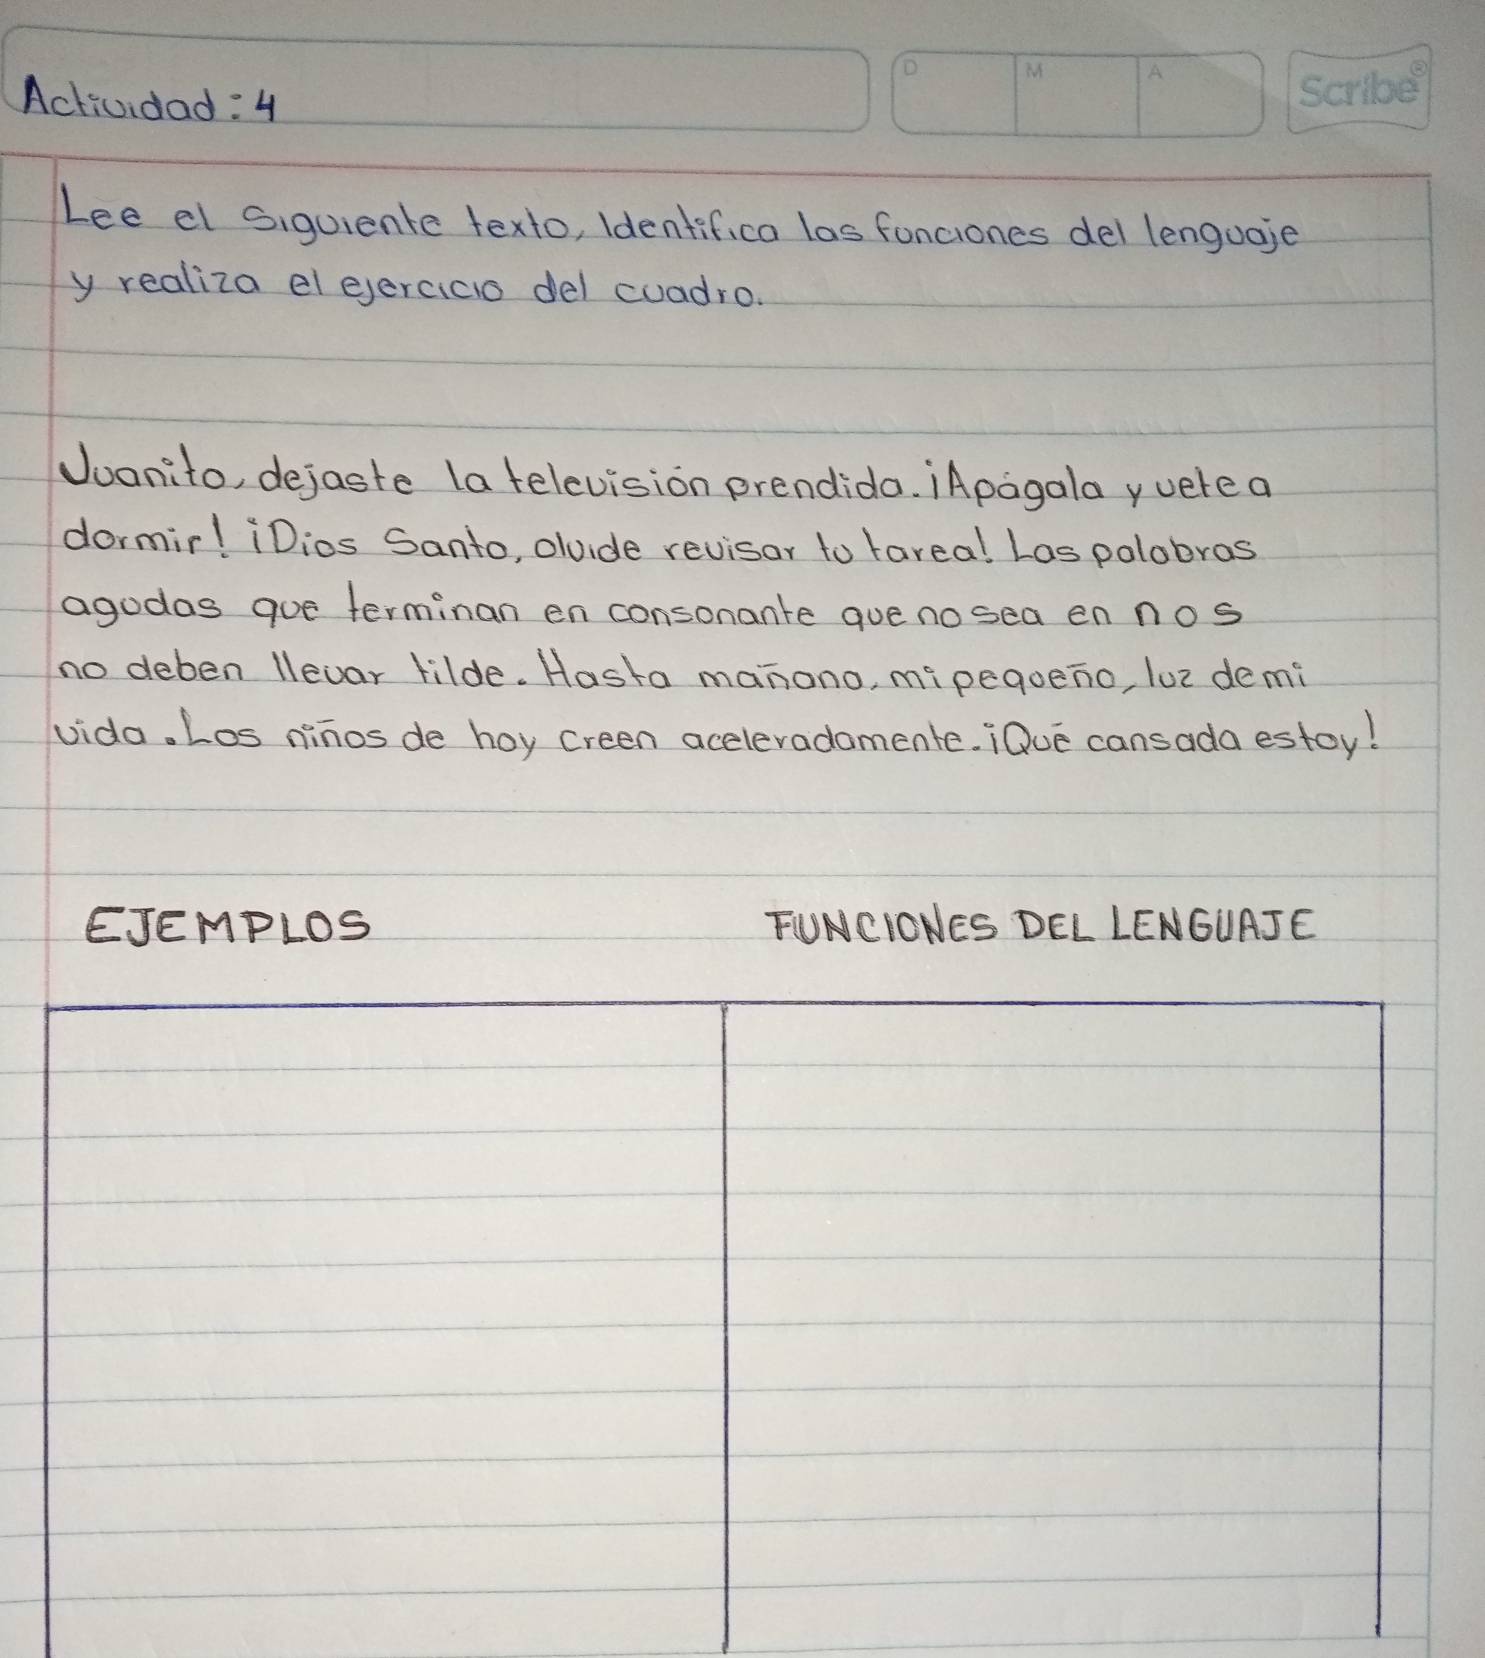 Actividad: 4
D M A
Scribe®
Lee el siguiente texto, Identifica las funciones del lenguaje
y realiza el ejercicio del cuadro.
Juanito, dejaste la televisión prendida. ¡Apágala y vete a
dormir! ¡Dios Santo, olvide revisar tu tarea! Las palabras
agudas que terminan en consonante que no sea en n o s
no deben llevar tilde. Hasta mañana, mi pequeño, luz de mi
vida. Los niños de hoy creen aceleradamente. ¡Qué cansada estoy!
EJEMPLOS FUNCIONES DEL LENGUAJE